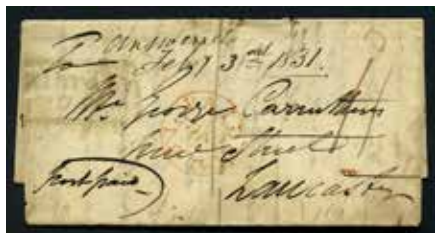 answered
Feby 3rd 1831.
Mr George Carruthers
Street
Lancaster
post paid